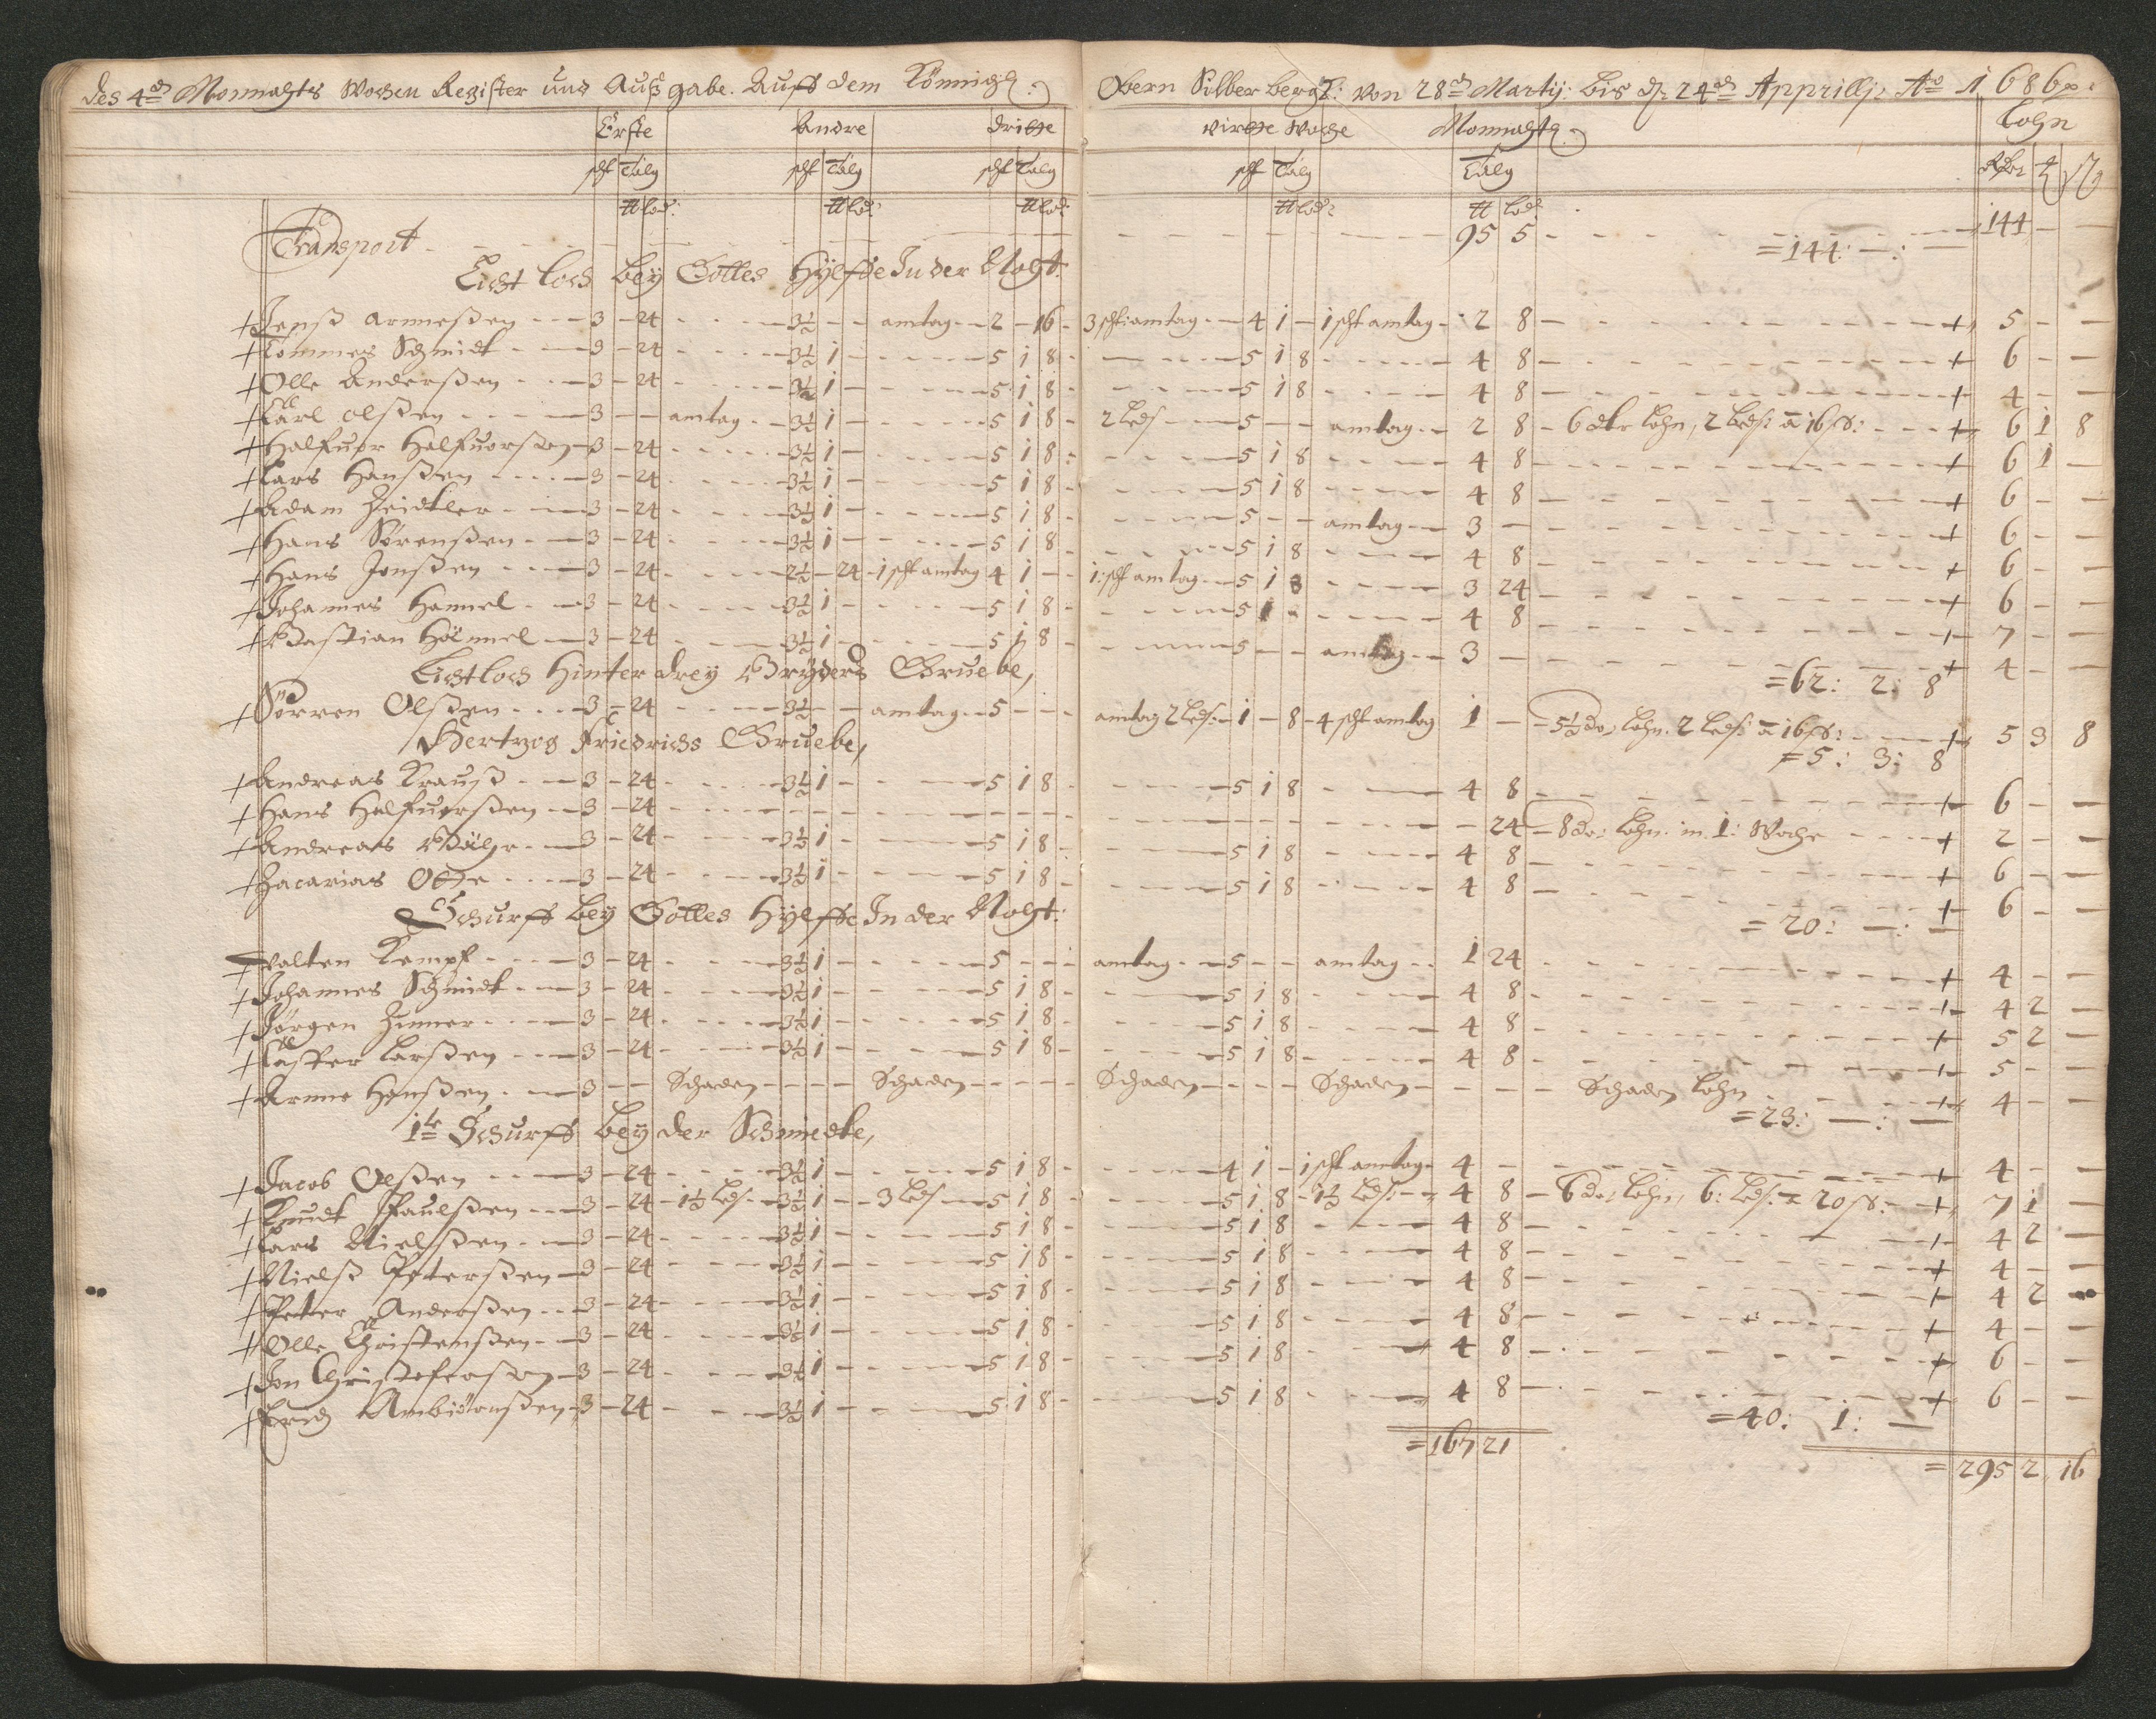 des 4ds Monnahts Wochen Register und Außgabe. Auff dem Königl: Obern Silberbergk: von 28ds Martij: bis d. 24ds Apprillj: Ao 1686
Erste Andre dritte virtte Woche Monnahts Lohn
schf Talg schf Talg schf Talg schf Talg Talg
℔ lod: ℔ lod: ℔ lod: ℔ lod: ℔ lod:
Transport - 95 5 - =144: —: — 144 — —
Licht loch bey Gottes Hylffe In der Noht:
+ Jenß Armeßen - 3 - 24 - 3½ - - amtag - 2 - 16 - 3 schf amtag - 4 1 - 1 schf amtag - 2 8 - + 5 - -
+ Tommes Schmidt - 3 - 24 - 3½ 1 - 5 1 8 - 5 1 8 - 4 8 - + 6 - -
+ Olle Anderßen - 3 - 24 - 3½ 1 - 5 1 8 - 5 1 8 - 4 8 - + 4 - -
+ Carl Olßen - 3 - - amtag - 3½ 1 - 5 1 8 - 2 Leds - 5 - - amtag - 2 8 - 6 dlr Lohn, 2 Leds: a 16 ß: - + 6 1 8
+ Halfuor Halfuorßen - 3 - 24 - 3½ 1 - 5 1 8 - 5 1 8 - 4 8 - + 6 1 -
+ Lars Hanßen - 3 - 24 - 3½ 1 - 5 1 8 - 5 1 8 - 4 8 - + 6 - -
+ Adam Zeidtler - 3 - 24 - 3½ 1 - 5 1 8 - 5 - - amtag - 3 - + 6 - -
+ Hans Sörenßen - 3 - 24 - 3½ 1 - 5 1 8 - 5 1 8 - 4 8 - + 6 - -
+ Hans Jonßen - 3 - 24 - 2½ - 24 - 1 schf amtag 4 1 - - 1: schf amtag - 5 1 8 - 3 24 - + 6 - -
+ Johannes Hannel - 3 - 24 - 3½ 1 - 5 1 8 - 5 1 - 4 8 - + 7 - -
+ Bastian Hännel - 3 - 24 - 3½ 1 - 5 1 8 - 5 - - amtag - 3 - + 4 - -
Lichtloch Hinter drey Brÿders Gruebe, =62: 2: 8
+ Sörren Olßen - 3 - 24 - 3½ - - amtag - 5 - - amtag 2 Leds: - 1 - 8 - 4 schf amtag 1 - = 5½ do: Lohn. 2 Leds: a 16 ß: - + 5 3 8
Hertzog Friedrichs Gruebe, =5: 3: 8
+ Andreas Krauß - 3 - 24 - 3½ 1 - 5 1 8 - 5 1 8 - 4 8 - + 6 - -
+ Hans Halfuorßen - 3 - 24 - 24 - 8 do: Lohn. in 1: Woche - + 2 - -
+ Andreas - 3 - 24 - 3½ 1 - 5 1 8 - 5 1 8 - 4 8 - + 6 - -
+ Zacarias Otte - 3 - 24 - 3½ 1 - 5 1 8 - 5 1 8 - 4 8 - + 6 - -
Schurff bey Gottes Hylffe In der Noht: = 20: —: —
+ Valten Kempf - 3 - 24 - 3½ 1 - 5 - - amtag - 5 - - amtag - 1 24 - + 4 - -
+ Johannes Schmidt - 3 - 24 - 3½ 1 - 5 1 8 - 5 1 8 - 4 8 - + 4 2 -
+ Jörgen Zimer - 3 - 24 - 3½ 1 - 5 1 8 - 5 1 8 - 4 8 - + 5 2 -
+ Casper Larßen - 3 - 24 - 3½ 1 - 5 1 8 - 5 1 8 - 4 8 - + 5 - -
+ Arne Hanßen - 3 - - Schaden - Schaden - Schaden - Schaden - Schaden Lohn - + 4 - -
1te Schurff bey der Schmiedte, =23: —: —
+ Jacob Olßen - 3 - 24 - 3½ 1 - 5 1 8 - 4 1 - 1 schf amtag - 4 - + 4 - -
+ Knudt Paulßen - 3 - 24 - 1½ Leds - 3½ 1 - 3 Leds - 5 1 8 - 5 1 8 - 1½ Leds: - 4 8 - 6 do: Lohn, 6: Leds: a 20 ß: - + 7 1 -
+ Lars Nielßen - 3 - 24 - 3½ 1 - 5 1 8 - 5 1 8 - 4 8 - + 4 2 -
+ Nielß Peterßen - 3 - 24 - 3½ 1 - 5 1 8 - 5 1 8 - 4 8 - + 4 - -
+ Peter Anderßen - 3 - 24 - 3½ 1 - 5 1 8 - 5 1 8 - 4 8 - + 4 2 -
+ Olle Christenßen - 3 - 24 - 3½ 1 - 5 1 8 - 5 1 8 - 4 8 - + 4 - -
+ Jon Christoferßen - 3 - 24 - 3½ 1 - 5 1 8 - 5 1 8 - 4 8 - + 6 - -
+ Erich - 3 - 24 - 3½ 1 - 5 1 8 - 5 1 8 - 4 8 - + 6 - -
=40: 1: —
=167 21
= 295 2 16